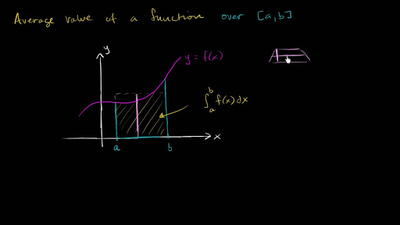 Average value of a function over [a,b]
y
y = f(x)
∫_a^b f(x) dx
x
a
b